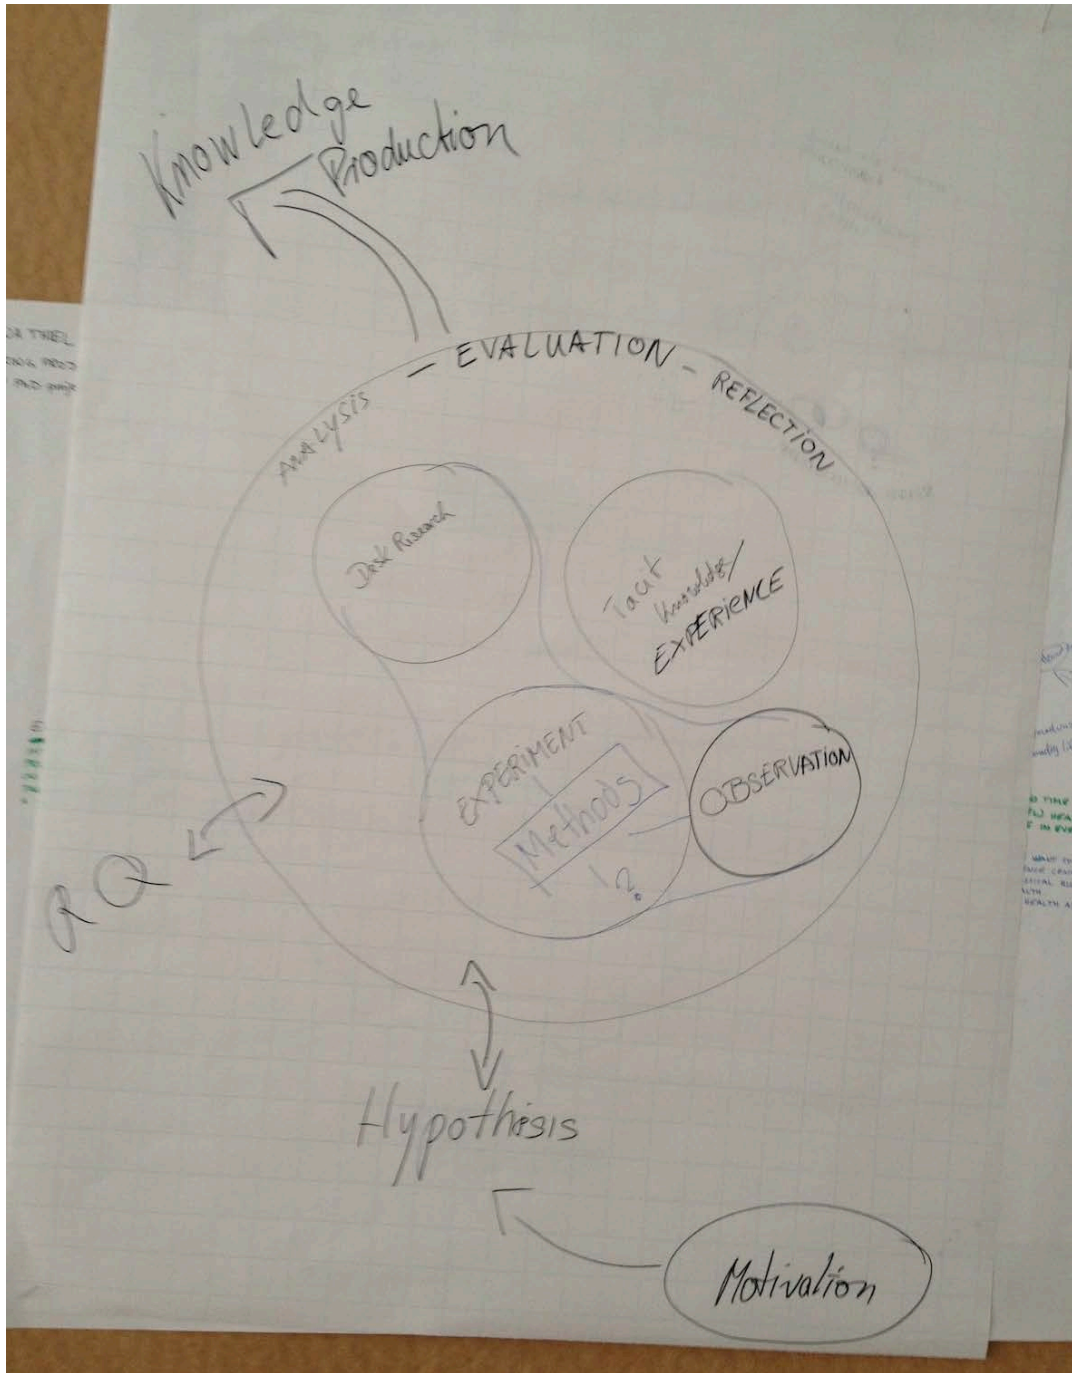 Knowledge
Production
ANALYSIS
- EVALUATION - REFLECTION
Desk Research
Tacit
Knowledge/
EXPERIENCE
EXPERIMENT
Methods
?
OBSERVATION
RQ
Hypothisis
Motivation
TIME
HEALTH A